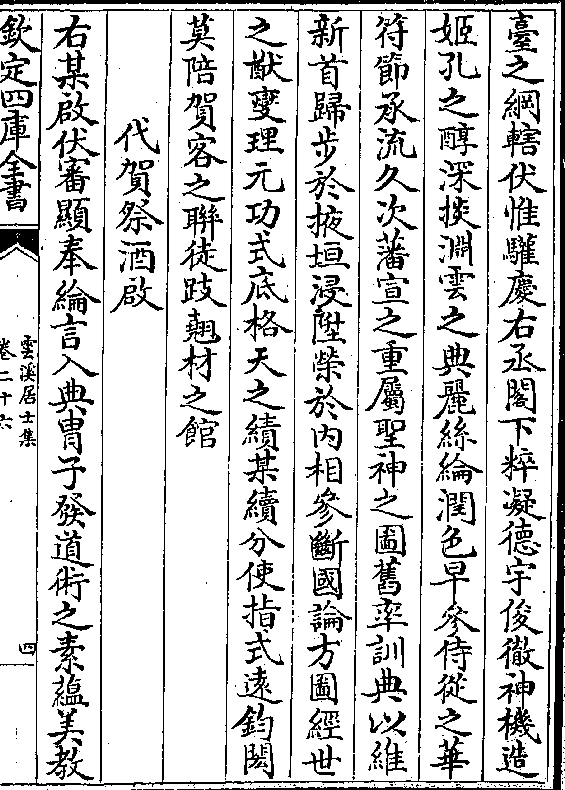 臺之綱轄伏惟驩慶右丞閣下粹凝德宇俊徹神機造
姬孔之醇深掞淵雲之典麗絲綸潤色早參侍從之華
符節承流久次藩宣之重屬聖神之圖舊率訓典以維
新首歸步於掖垣浸陞榮於內相參斷國論方圖經世
之猷燮理元功式底格天之績某續分使指式遠鈞閎
莫陪賀客之聯徒跂翹材之館
代賀祭酒啟
右某啟伏審顯奉綸言入典冑子發道術之素蘊美教
欽定四庫全書
雲溪居士集
卷二十六
四